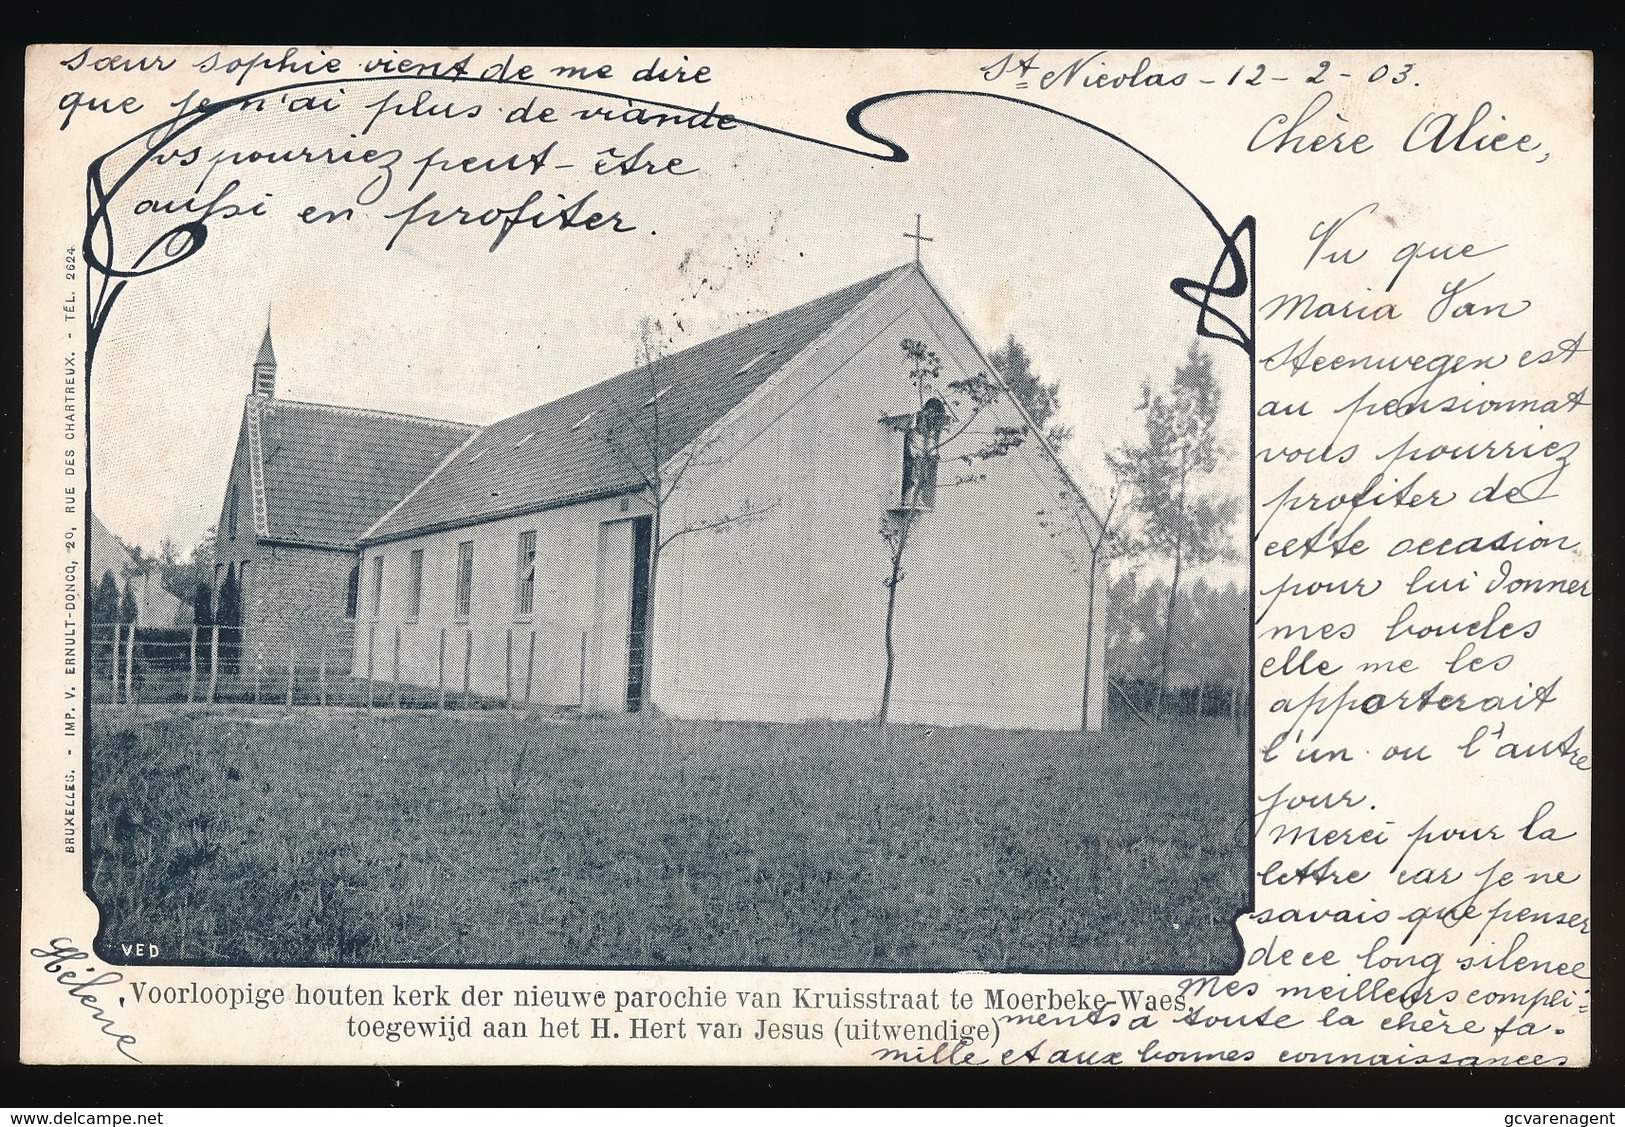 St Nicolas - 12 - 2 - 03.
Chère Alice,
Vu que
Maria Van
Steenwegen est
au pensionnat
vous pourriez
profiter de
cette occasion
pour lui donner
mes boucles
elle me les
apporterait
l'un ou l'autre
jour.
Merci pour la
lettre car je ne
savais que penser
de ce long silence
Mes meilleurs compli-
ments à toute la chère fa-
mille et aux bonnes connaissances
Hélène
sœur sophie vient de me dire
que je n'ai plus de viande
vs pourriez peut-être
aussi en profiter.
BRUXELLES. - IMP. V. ERNULT-DONCQ, 20, RUE DES CHARTREUX. - TÉL. 2624
VED
Voorloopige houten kerk der nieuwe parochie van Kruisstraat te Moerbeke-Waes,
toegewijd aan het H. Hert van Jesus (uitwendige)
delcampe.net
gcvarenagent